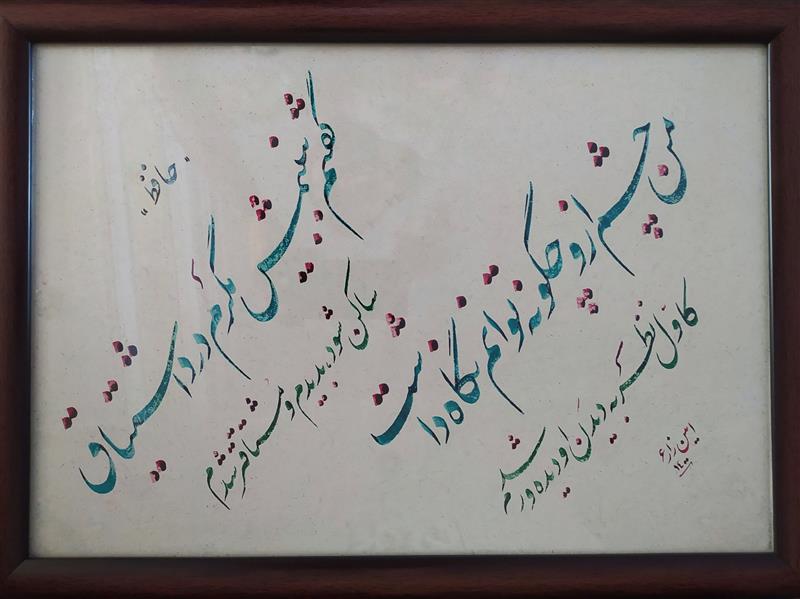 من چشم ازو چگونه توانم نگاه داشت
کاول نظر به دیدن او دیده‌ور شدم
گفتم ببینمش مگرم درد اشتیاق
ساکن شود، بدیدم و مشتاق‌تر شدم
"حافظ"
امین زارع
۱۴۰۰